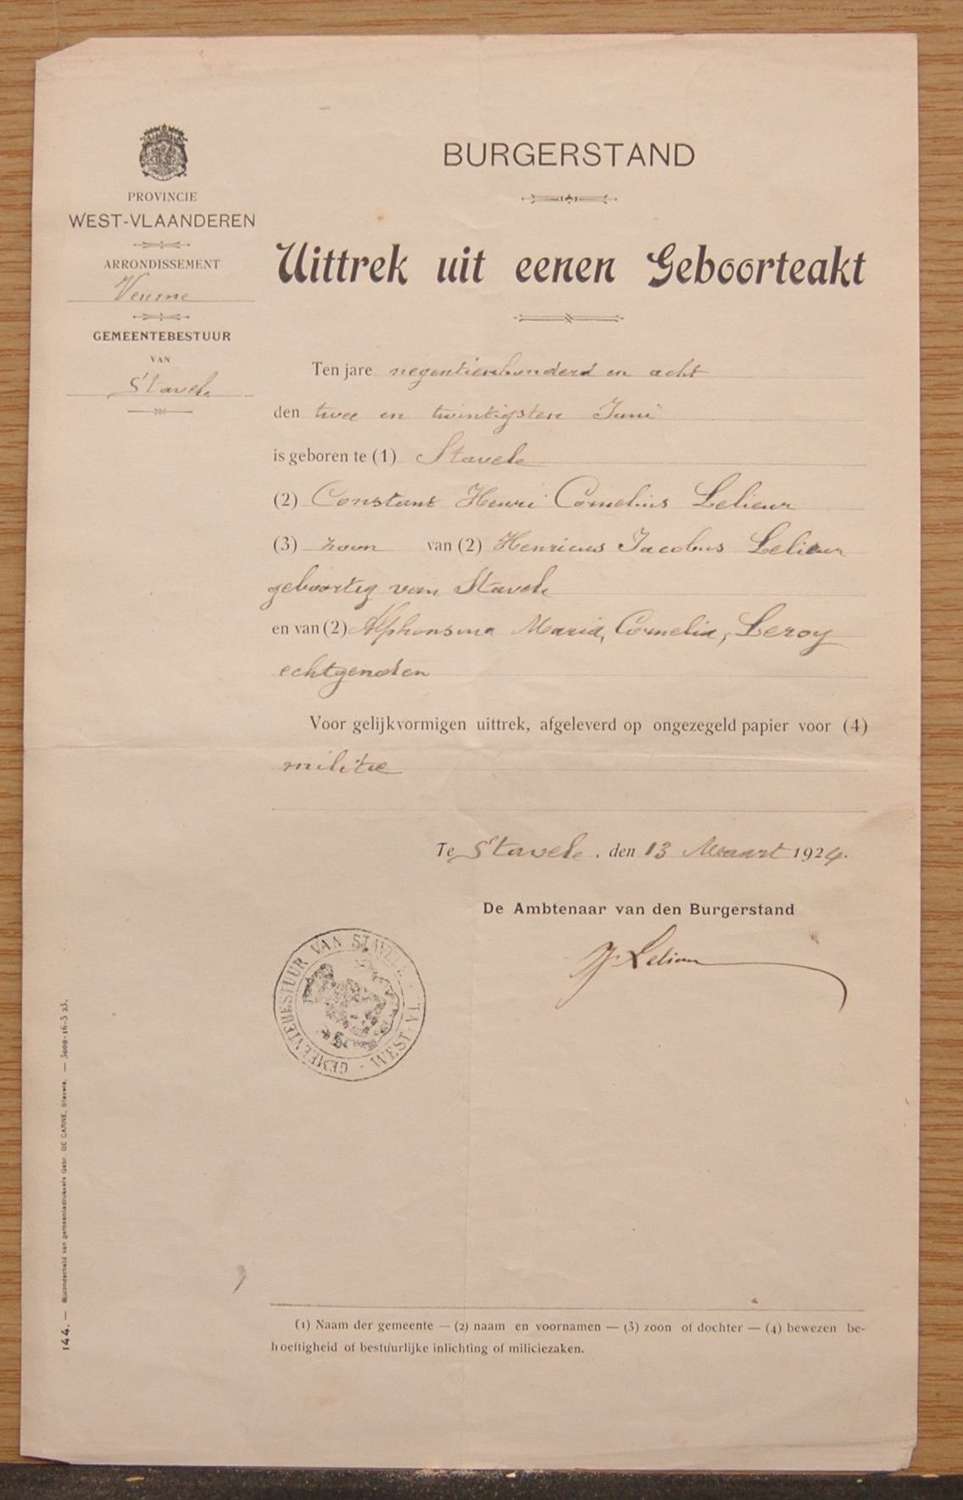 PROVINCIE
WEST-VLAANDEREN
ARRONDISSEMENT
Veurne
GEMEENTEBESTUUR
VAN
Stavele
BURGERSTAND
Uittrek uit eenen Geboorteakt
Ten jare negentienhonderd en acht
den twee en twintigsten Juni
is geboren te (1) Stavele
(2) Constant Henri Cornelius Lelieur
(3) zoon van (2) Henricus Jacobus Lelieur
geboortig van Stavele
en van (2) Alphonsina Maria, Cornelia, Leroy
echtgenoten
Voor gelijkvormigen uittrek, afgeleverd op ongezegeld papier voor (4)
militie
Te Stavele, den 13 Maart 1924.
De Ambtenaar van den Burgerstand
GEMEENTEBESTUUR VAN STAVELE - WEST-VL.
(1) Naam der gemeente — (2) naam en voornamen — (3) zoon of dochter — (4) bewezen be-
hoeftigheid of bestuurlijke inlichting of miliciezaken.
144. — Bijzonderheid van gemeentedrukwerk Gebr. DE CARNE, Stavele. —